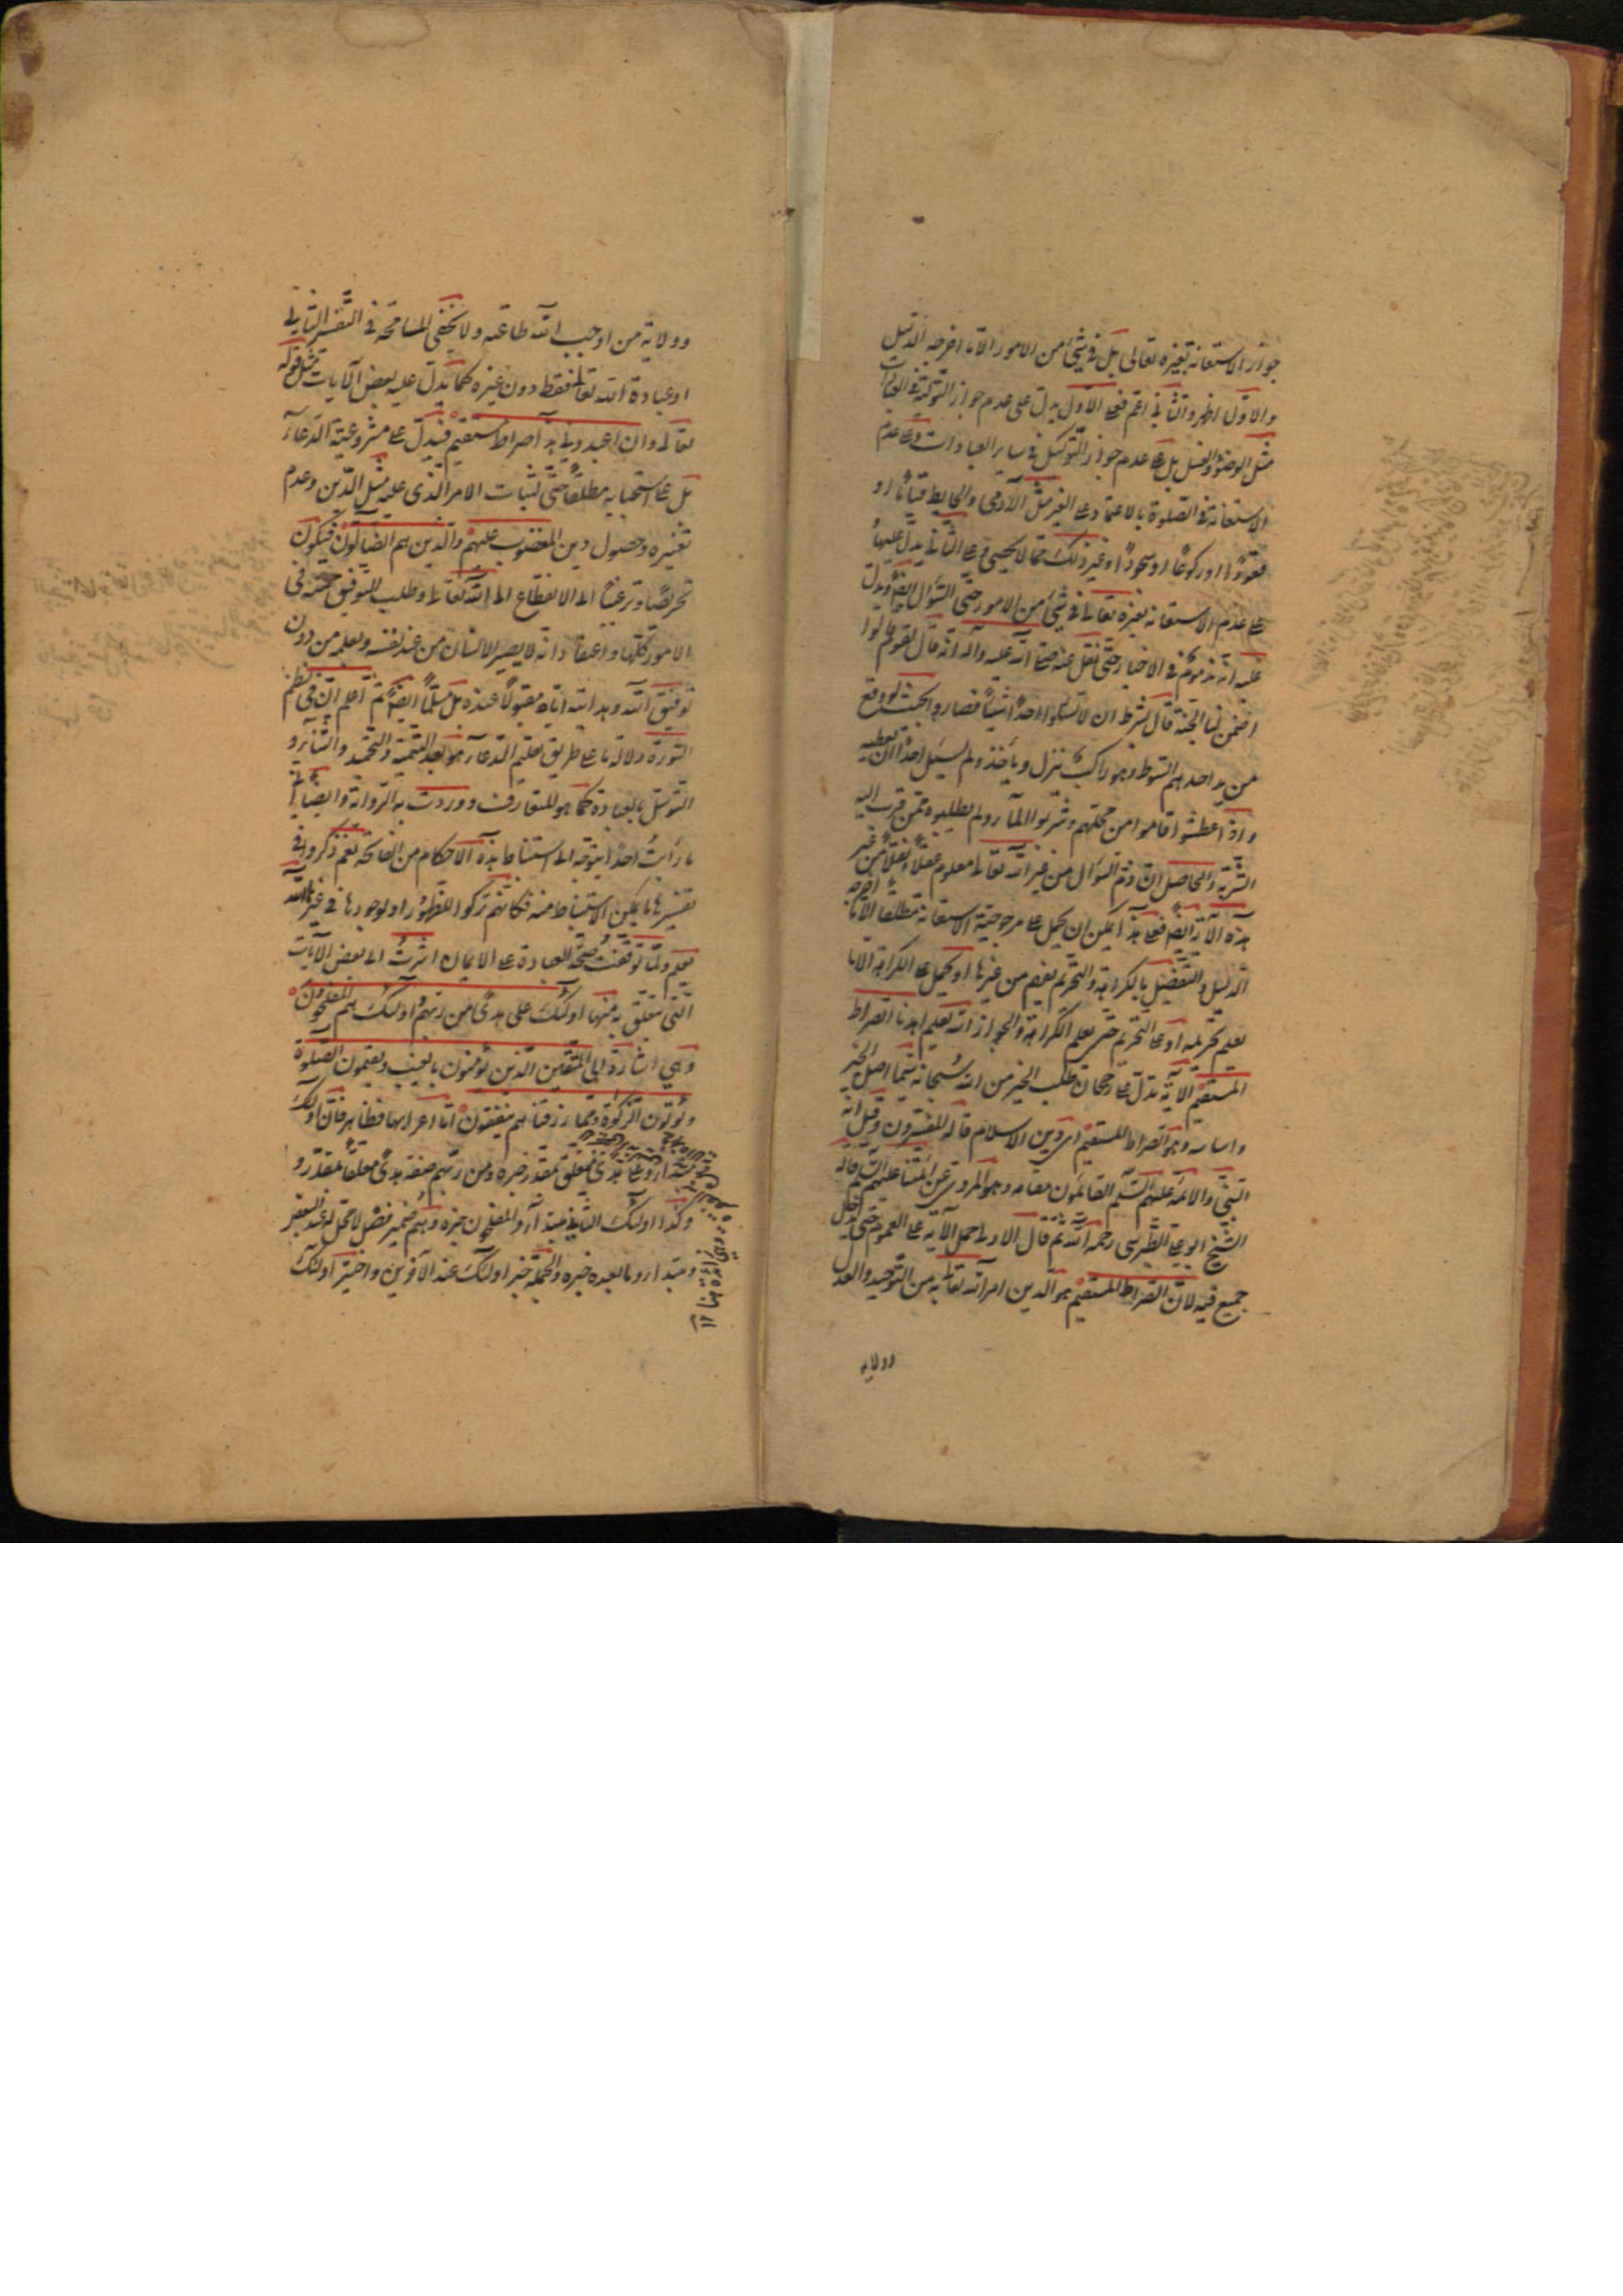 جواز الاستعانة بغيره تعالى بل في شيء من الامور الا ما اخرجه الدليل
والاول اظهر والثاني اعم فعلى الاول يدل على عدم جواز التولية في العبادات
مثل الوضوء والغسل بل على عدم جواز التوكيل في ساير العبادات وعلى عدم
الاستعانة في الصلوة بالاعتماد على الغير مثل الآدمي والحايط قياما او
قعودا او ركوعا او سجودا وغير ذلك مما لا يحصى وعلى الثاني يدل عليها
على عدم الاستعانة بغيره تعالى في شيء من الامور حتى السؤال ايضا ويدل
عليه انه مذموم في الاخبار حتى نقل عنه صلى الله عليه وآله انه قال لقوم قالوا
اضمن لنا الجنة قال بشرط ان لا تسئلوا احدا شيئا فصاروا بحيث لو وقع
من يد احدهم السوط وهو راكب ينزل وياخذ ولم يسئل احدا ان يعطيه
واذا عطشوا قاموا من محلهم وشربوا الماء ولم يطلبوه ممن قرب اليه
الشربة والحاصل ان ذم السؤال من غير الله تعالى معلوم عقلا ونقلا من غير
هذه الآية ايضا فعلى هذا يمكن ان يحمل على مرجوحية الاستعانة مطلقا الا ما اخرجه
الدليل والتفضيل بالكراهة والتحريم يفهم من غيرها او يحمل على الكراهة الا ما
يعلم تحريمه او على التحريم حتى يعلم الكراهة والجواز انه تعليم اهدنا الصراط
المستقيم الاية تدل على رجحان طلب الخير من الله سبحانه سيما اصل الخير
واساسه وهو الصراط المستقيم اي دين الاسلام قاله المفسرون وقيل انه
النبي والائمة عليهم السلم القائمون مقامه وهو المروي عن ائمتنا عليهم السلم قاله
الشيخ ابو علي الطبرسي رحمه الله ثم قال الاولى حمل الآية على العموم حتى يدخل
جميع فيه لان الصراط المستقيم هو الدين امر الله تعالى به من التوحيد والعدل
وولاية
وولاية من اوجب الله طاعته ولا يخفى المسامحة في التفسير الثاني
او عبادة الله تعالى فقط دون غيره كما يدل عليه بعض الآيات مثل قوله
تعالى وان اعبدوني هذا صراط مستقيم فيدل على مشروعية الدعاء
بل على استحبابه مطلقا حتى لثبات الامر الذي عليه مثل الدين وعدم
تغييره وحصول دين المغضوب عليهم والذين هم الضالون فيكون
تحريصا وترغيبا الى الانقطاع الى الله تعالى وطلب التوفيق حتى في
الامور كلها واعتقاد انه لا يصير الانسان من عند نفسه وبعلمه من دون
توفيق الله وهدايته اياه مقبولا عنده بل مسلما ايضا ثم اعلم ان في نظم
السورة دلالة ما على طريق تعليم الدعاء هو بعد التسمية والتحميد والثناء و
التوسل بالعبادة كما هو المتعارف ووردت به الرواية وايضا اني
ما رأيت احدا يتوجه الى استنباط هذه الاحكام من الفاتحة نعم ذكروا في
تفسيرها ما يمكن الاستنباط منه فكانهم تركوا للظهور او لوجودها في غيرها الله
يعلم ولما توقفت صحة العبادة على الايمان اشرت الى بعض الآيات
التي تتعلق به منها اولئك على هدى من ربهم واولئك هم المفلحون
وهي اشارة الى المتقين الذين يؤمنون بالغيب ويقيمون الصلوة
ويؤتون الزكوة ومما رزقناهم ينفقون اما اعرابها فظاهر فان اولئك
مبتداء وعلى هدى متعلق بمقدر خبره ومن ربهم صفة هدى متعلقا بمقدر و
وكذا اولئك الثاني مبتدأ والمفلحون خبره وهم ضمير فصل لا محل له عند البعض
ومبتداء وما بعده خبره والجملة خبر اولئك عند الآخرين واختير اولئك